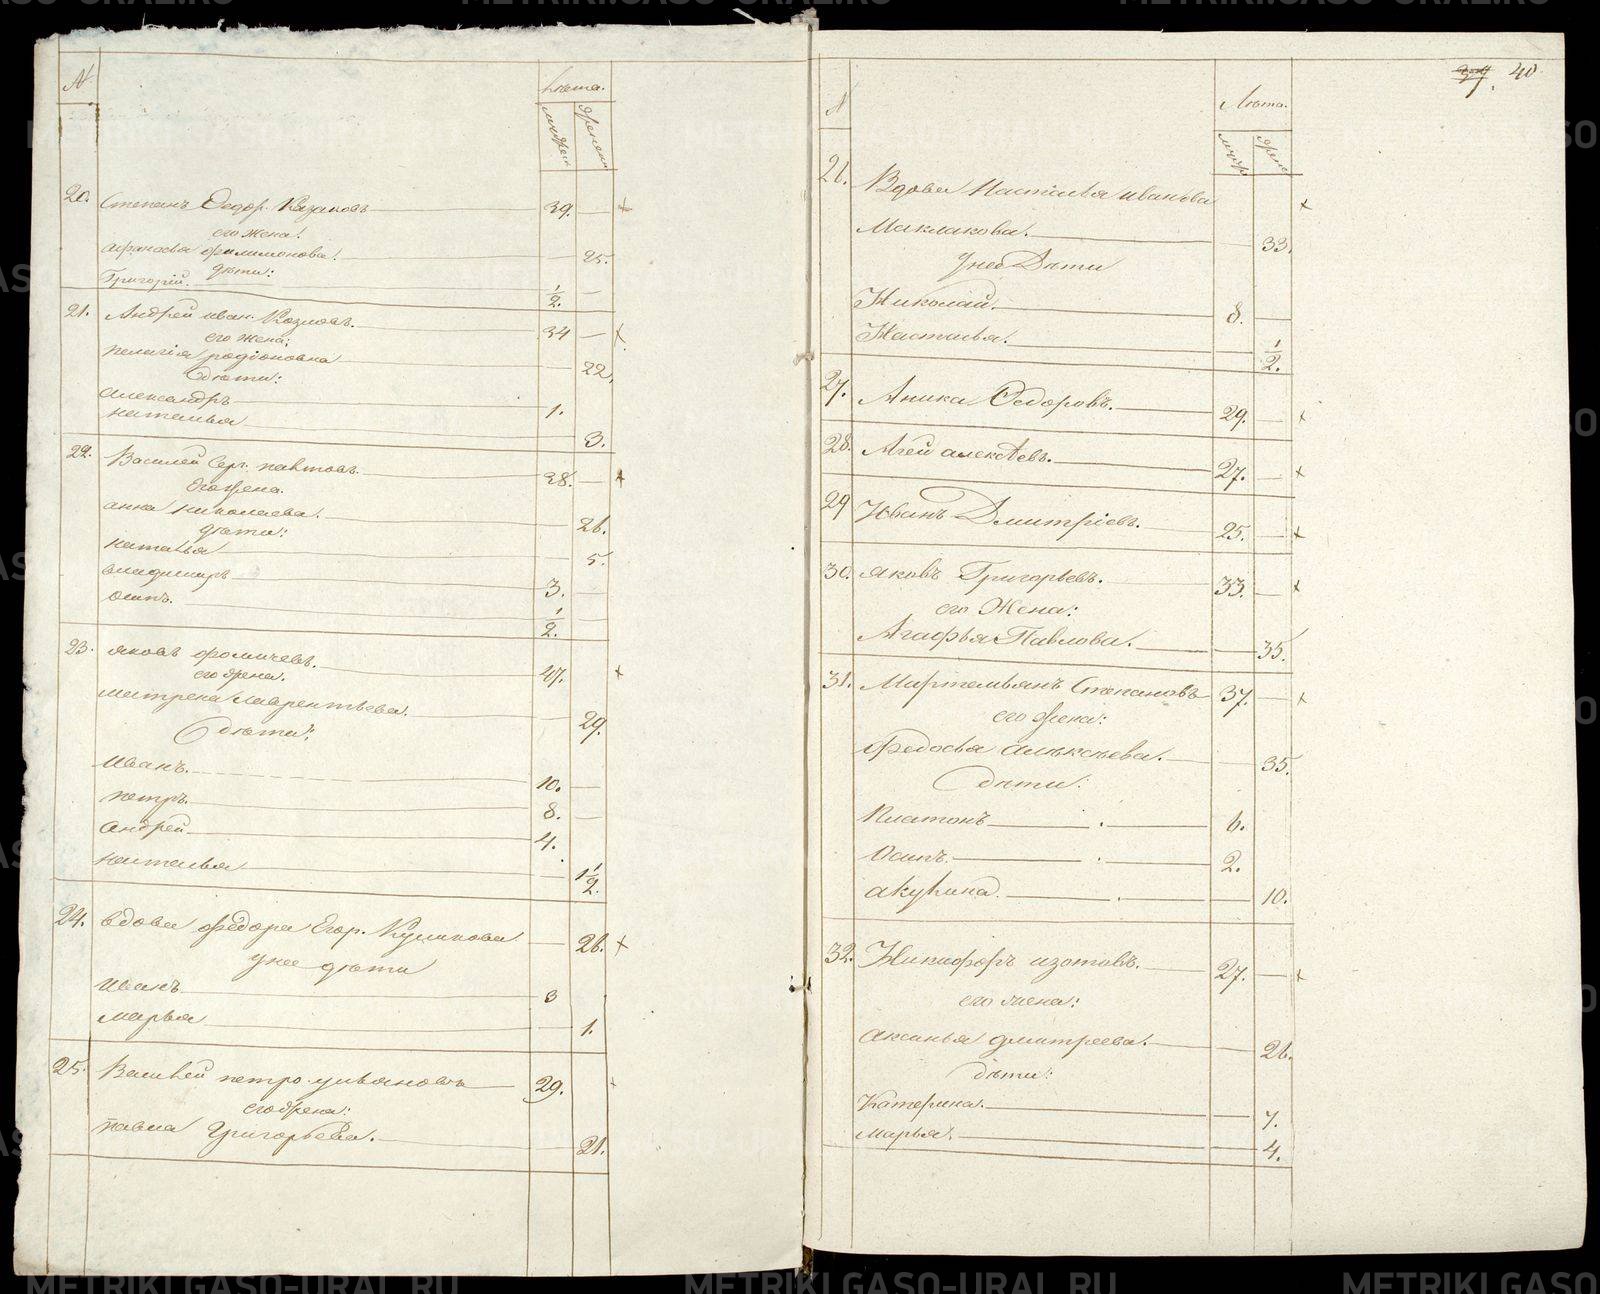 № Лѣта.
мужеск женски
20. Степанъ Федор. Казаковъ 39.
его жена:
Афанасья филимонова. 25.
дѣти:
Григорій. 1/2.
21. Андрей иван. Козловъ. 34
его жена:
пелагія родіоновна 22.
дѣти:
александръ 1.
наталья 3.
22. Василей Сер. 38.
его жена.
анна николаева. 26.
дѣти:
наталья 5.
владимиръ 3.
осипъ. 1/2.
23. яковъ фомичевъ. 47.
его жена.
матрена лаврентьева. 29.
дѣти:
иванъ. 10.
петръ. 8.
андрей 4.
наталья 1 1/2.
24. вдова федора Егор. Куликова 26.
у нее дѣти
иванъ 3
марья 1.
25. Василей петро. 29.
его жена:
павла Григорьева. 21.
39. 40
№ Лѣта.
мужр. жен.
26. Вдова Настасья иванова
Маклакова. 33.
у нее Дѣти
Николай. 8.
Настасья. 1/2.
27. Аника Федоровъ. 29.
28. Агей алексѣевъ. 27.
29 Иванъ Дмитріевъ. 25.
30. яковъ Григорьевъ. 33.
его Жена:
Агафья Павлова. 35.
31. Мартемьянъ Степановъ 37.
его жена:
федосья алексѣева. 35.
дѣти:
Платонъ 6.
Осипъ. 2.
акулина. 10.
32. Никифоръ изотовъ. 27.
его жена:
аксинья дмитреева. 26.
дѣти:
Катерина. 7.
марья. 4.
METRIKI.GASO-URAL.RU